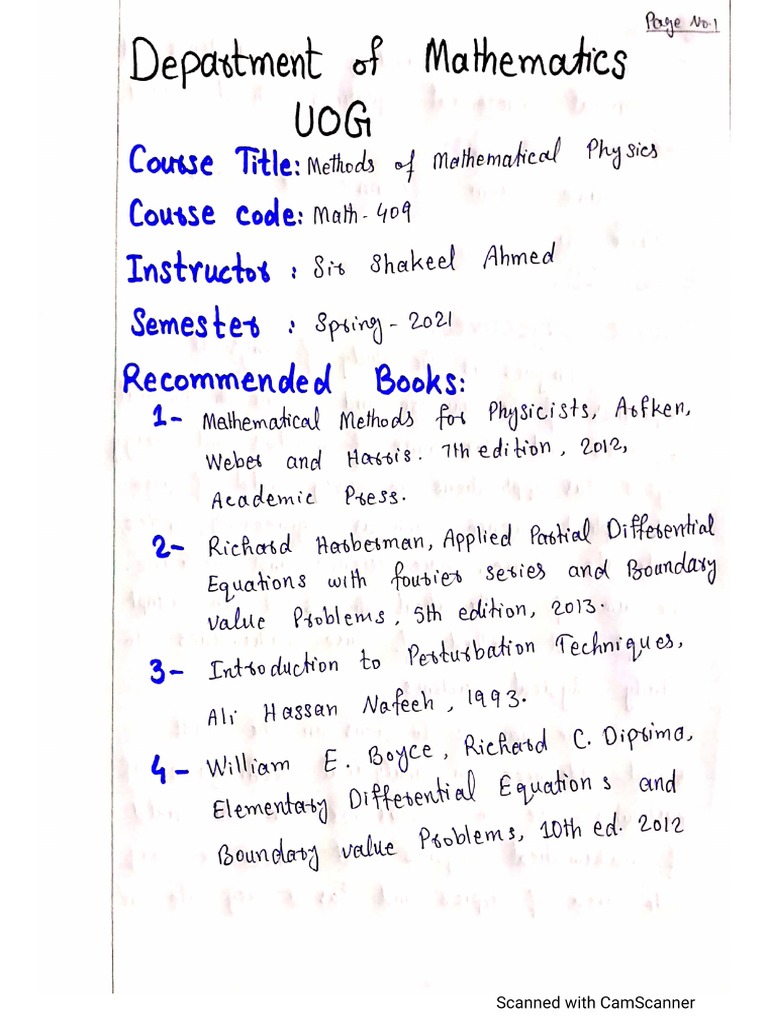 Page No.1
Department of Mathematics
UOG
Course Title: Methods of Mathematical Physics
Course code: Math-409
Instructor : Sir Shakeel Ahmed
Semester : Spring-2021
Recommended Books:
1- Mathematical Methods for Physicists, Arfken,
Weber and Harris. 7th edition, 2012,
Academic Press.
2- Richard Harberman, Applied Partial Differential
Equations with fourier series and Boundary
value Problems, 5th edition, 2013.
3- Introduction to Perturbation Techniques,
Ali Hassan Nafeeh, 1993.
4- William E. Boyce, Richard C. Diprima,
Elementary Differential Equations and
Boundary value Problems, 10th ed. 2012
Scanned with CamScanner